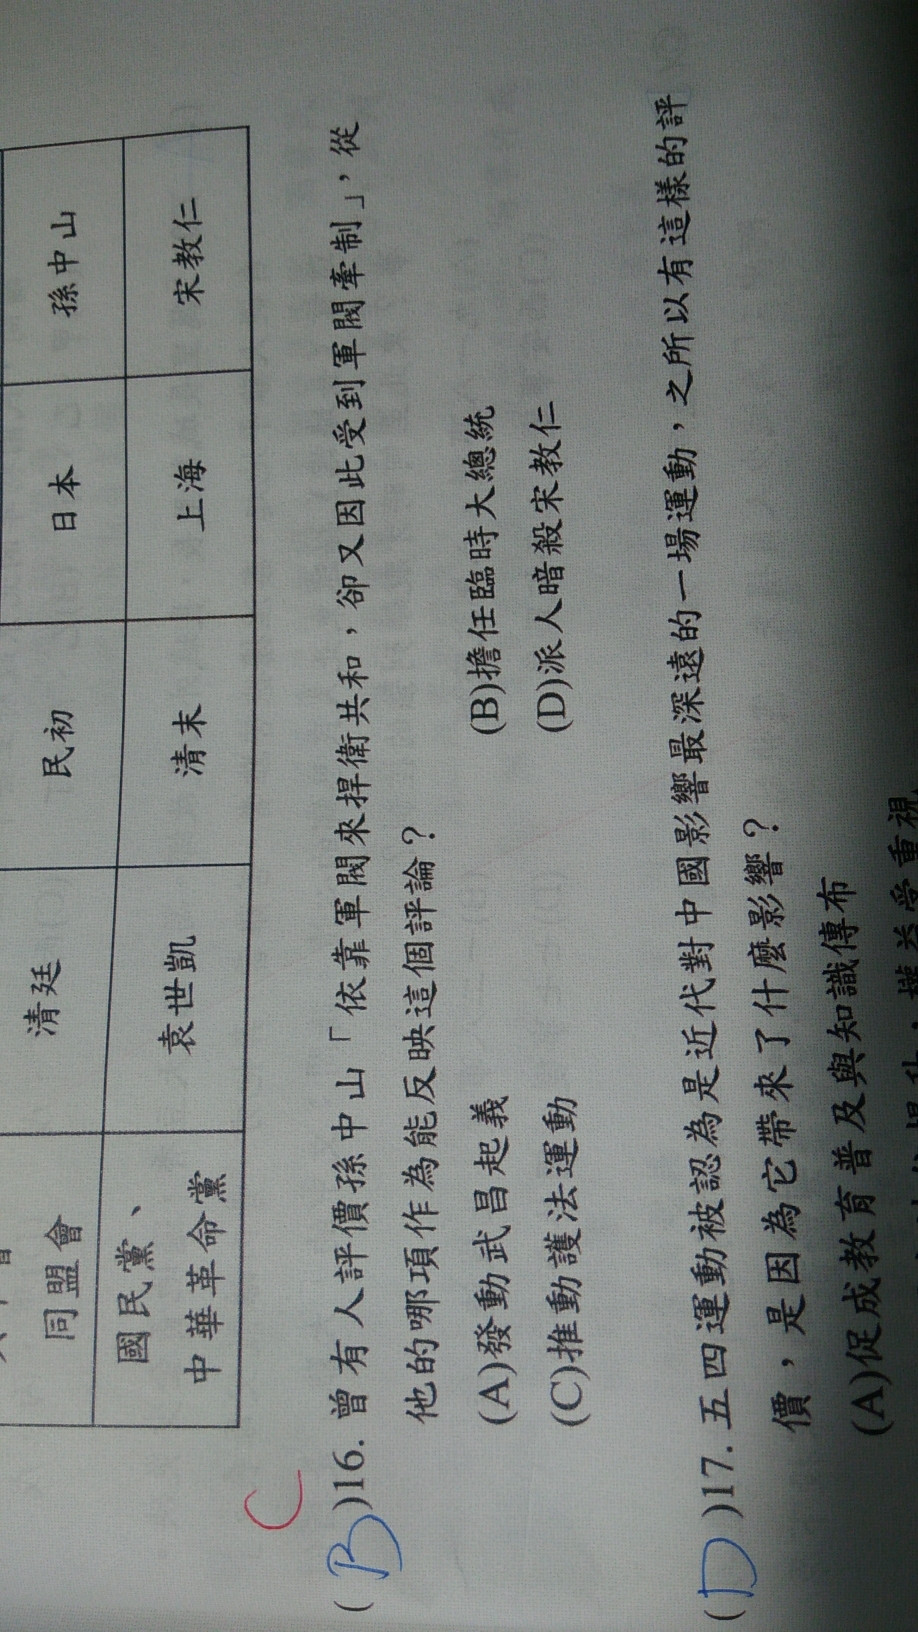 同盟會 清廷 民初 日本 孫中山
國民黨、
中華革命黨 袁世凱 清末 上海 宋教仁
C
(B)16. 曾有人評價孫中山「依靠軍閥來捍衛共和，卻又因此受到軍閥牽制」，從
他的哪項作為能反映這個評論？
(A)發動武昌起義 (B)擔任臨時大總統
(C)推動護法運動 (D)派人暗殺宋教仁
(D)17. 五四運動被認為是近代對中國影響最深遠的一場運動，之所以有這樣的評
價，是因為它帶來了什麼影響？
(A)促成教育普及與知識傳布